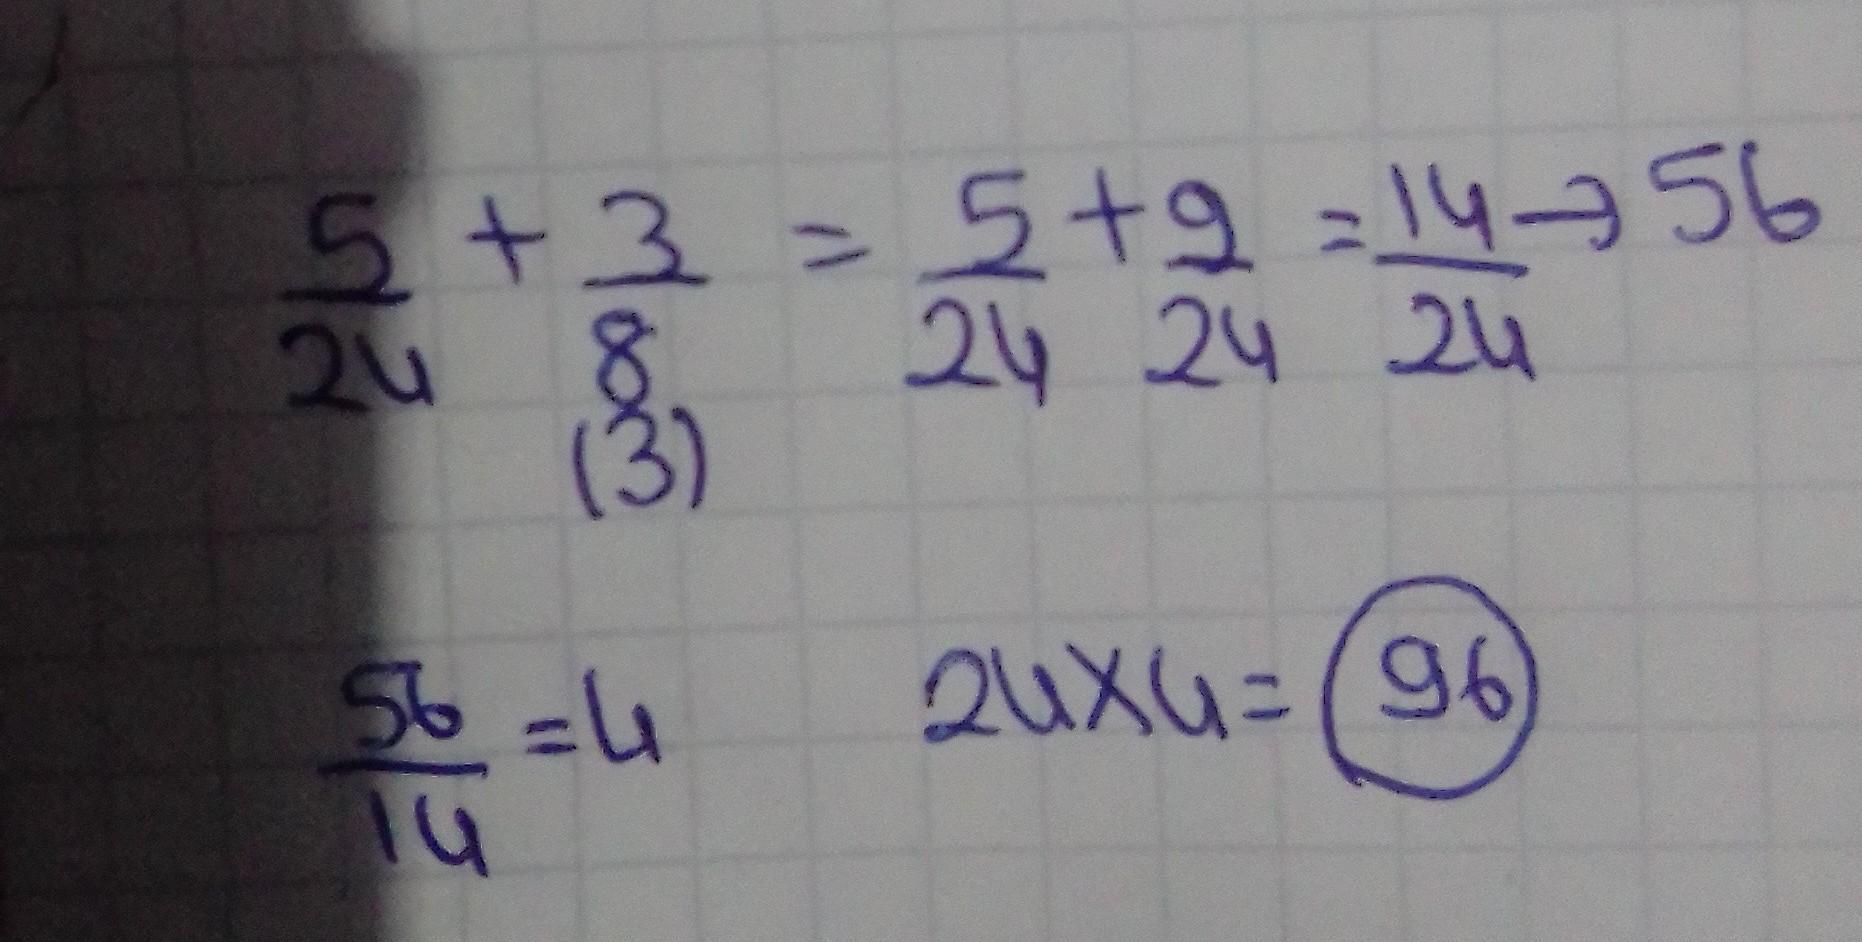 5/24 + 3/8 = 5/24 + 9/24 = 14/24 → 56
(3)
56/14 = 4 24x4= 96